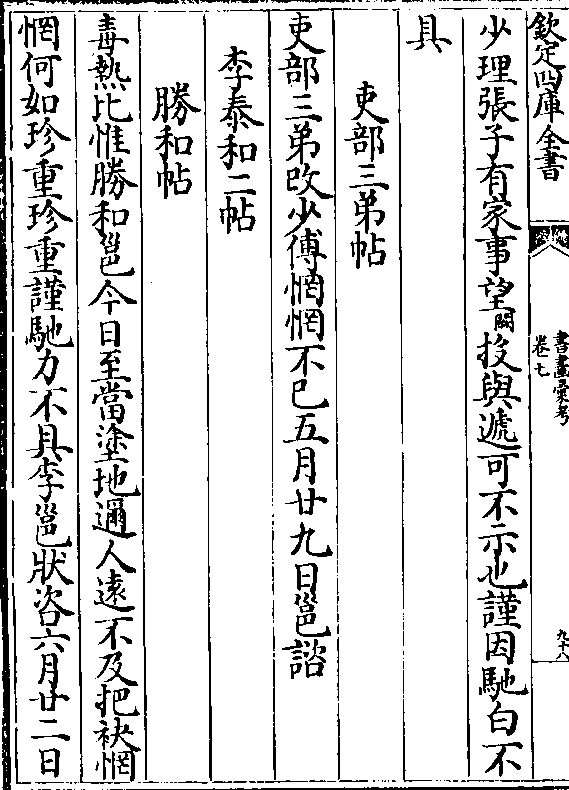 欽定四庫全書
書畫彙考
卷七
九十八
少理張子有家事望闕投與遞可不示也謹因馳白不
具
吏部三弟帖
吏部三弟改少傅惘惘不已五月廿九日邕諮
李泰和二帖
勝和帖
毒熱比惟勝和邕今日至當塗地邇人遠不及把袂惘
惘何如珍重珍重謹馳力不具李邕狀咨六月廿二日